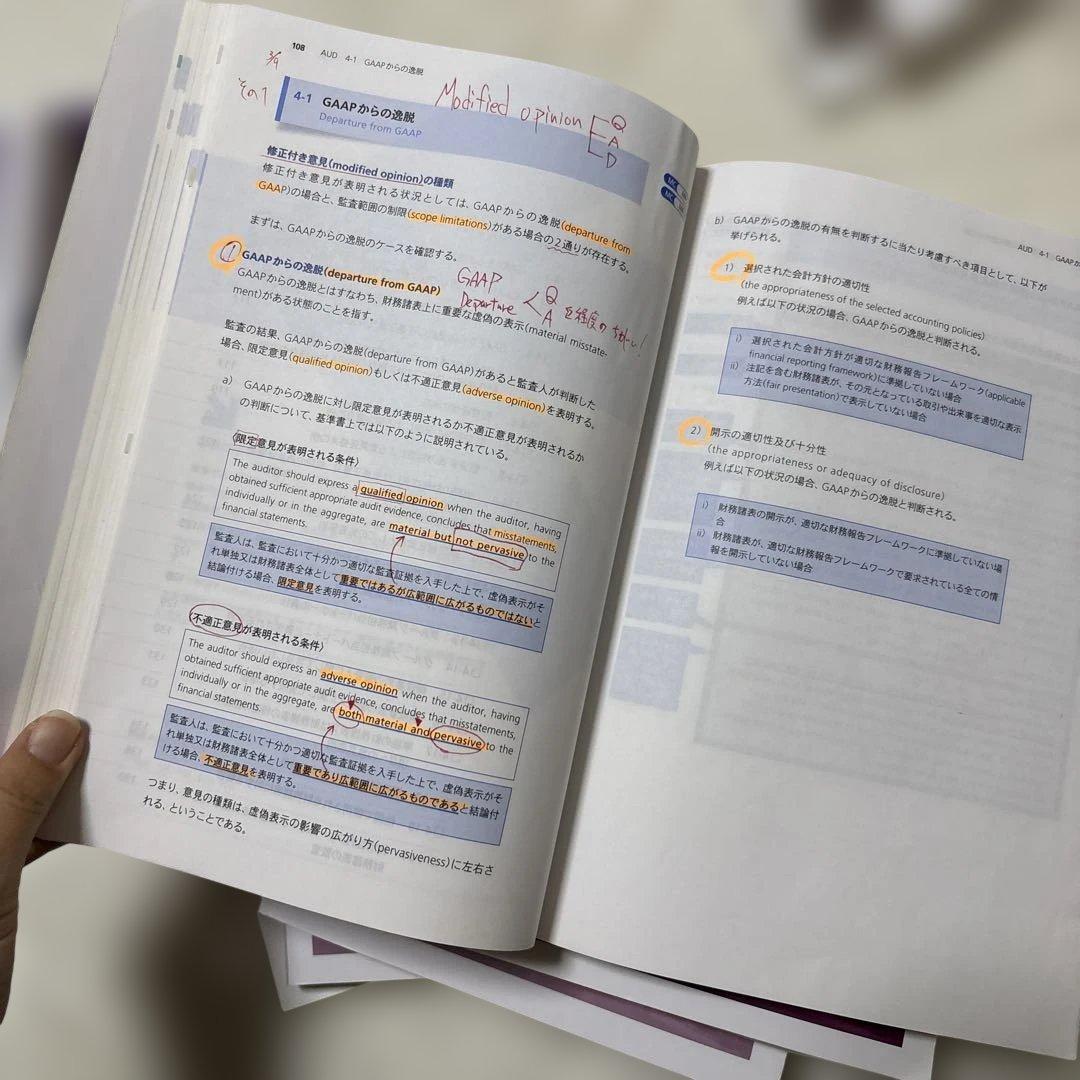 108 AUD 4-1 GAAPからの逸脱
3/9
その1
Modified opinion Q
A
D
4-1 GAAPからの逸脱
Departure from GAAP
修正付き意見(modified opinion)の種類
修正付き意見が表明される状況としては、GAAPからの逸脱(departure from
GAAP)の場合と、監査範囲の制限(scope limitations)がある場合の2通りが存在する。
まずは、GAAPからの逸脱のケースを確認する。
① GAAPからの逸脱(departure from GAAP)
GAAP
Departure < Q
A
程度の
GAAPからの逸脱とはすなわち、財務諸表上に重要な虚偽の表示(material misstate-
ment)がある状態のことを指す。
監査の結果、GAAPからの逸脱(departure from GAAP)があると監査人が判断した
場合、限定意見(qualified opinion)もしくは不適正意見(adverse opinion)を表明する。
a) GAAPからの逸脱に対し限定意見が表明されるか不適正意見が表明されるか
の判断について、基準書上では以下のように説明されている。
〈限定意見が表明される条件〉
The auditor should express a qualified opinion when the auditor, having
obtained sufficient appropriate audit evidence, concludes that misstatements,
individually or in the aggregate, are material but not pervasive to the
financial statements.
監査人は、監査において十分かつ適切な監査証拠を入手した上で、虚偽表示がそ
れ単独又は財務諸表全体として重要ではあるが広範囲に広がるものではないと
結論付ける場合、限定意見を表明する。
〈不適正意見が表明される条件〉
The auditor should express an adverse opinion when the auditor, having
obtained sufficient appropriate audit evidence, concludes that misstatements,
individually or in the aggregate, are both material and pervasive to the
financial statements.
監査人は、監査において十分かつ適切な監査証拠を入手した上で、虚偽表示がそ
れ単独又は財務諸表全体として重要であり広範囲に広がるものであると結論付
ける場合、不適正意見を表明する。
つまり、意見の種類は、虚偽表示の影響の広がり方(pervasiveness)に左右さ
れる、ということである。
AUD 4-1 GAAPか
b) GAAPからの逸脱の有無を判断するに当たり考慮すべき項目として、以下が
挙げられる。
1) 選択された会計方針の適切性
(the appropriateness of the selected accounting policies)
例えば以下の状況の場合、GAAPからの逸脱と判断される。
i) 選択された会計方針が適切な財務報告フレームワーク(applicable
financial reporting framework)に準拠していない場合
ii) 注記を含む財務諸表が、その元となっている取引や出来事を適切な表示
方法(fair presentation)で表示していない場合
2) 開示の適切性及び十分性
(the appropriateness or adequacy of disclosure)
例えば以下の状況の場合、GAAPからの逸脱と判断される。
i) 財務諸表の開示が、適切な財務報告フレームワークに準拠していない場
合
ii) 財務諸表が、適切な財務報告フレームワークで要求されている全ての情
報を開示していない場合